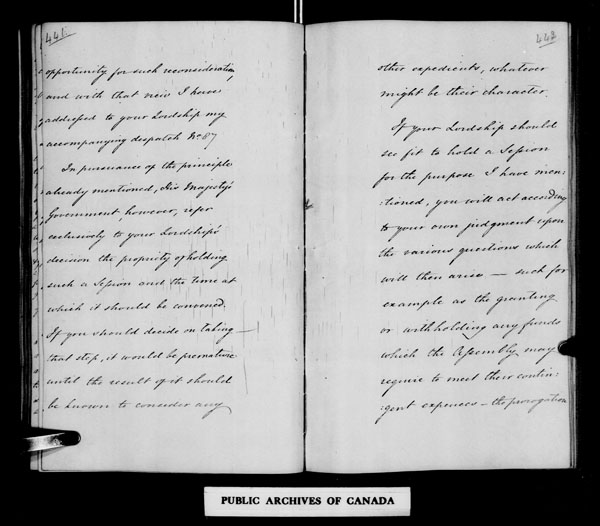 441.
opportunity for such reconsideration,
and with that view I have
addressed to your Lordship my
accompanying despatch No 87
In pursuance of the principle
already mentioned, His Majesty's
Government, however, refer
exclusively to your Lordships'
decision the propriety of holding
such a Session and the time at
which it should be convened.
If you should decide on taking
that step, it would be premature
until the result of it should
be known to consider any
442
other expedients, whatever
might be their character.
If your Lordship should
see fit to hold a Session
for the purpose I have men:
:tioned, you will act according
to your own judgment upon
the various questions which
will then arise — such for
example as the granting
or withholding any funds
which the Assembly may
require to meet their contin:
:gent expences — the prorogation
PUBLIC ARCHIVES OF CANADA